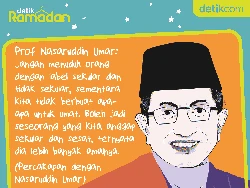 detik
Ramadan
detikcom
Prof Nasaruddin Umar:
Jangan menuduh orang
dengan label sekular dan
tidak sekular, sementara
kita tidak berbuat apa-
apa untuk umat. Boleh jadi
seseorang yang kita anggap
sekular dan sesat, ternyata
dia lebih banyak amalnya.
(Percakapan dengan
Nasaruddin Umar)